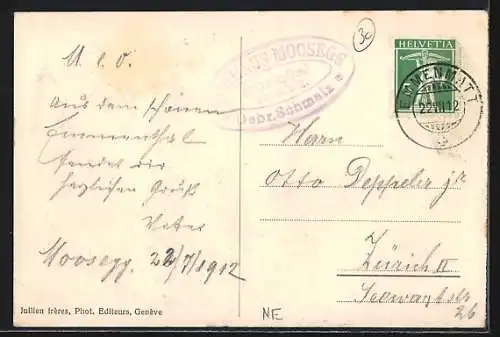 M. l. O.
Aus dem schönen
Emmenthal
sendet dir
herzlichen Gruß
Vater
Moosegg. 22/7/1912
MOOSEGG
Gebr. Schmalz
3c
HELVETIA
EMMENMATT
22.VII.12
Herrn
Otto Deppeler jr
Zürich II
26
Jullien frères, Phot. Editeurs, Genève
NE